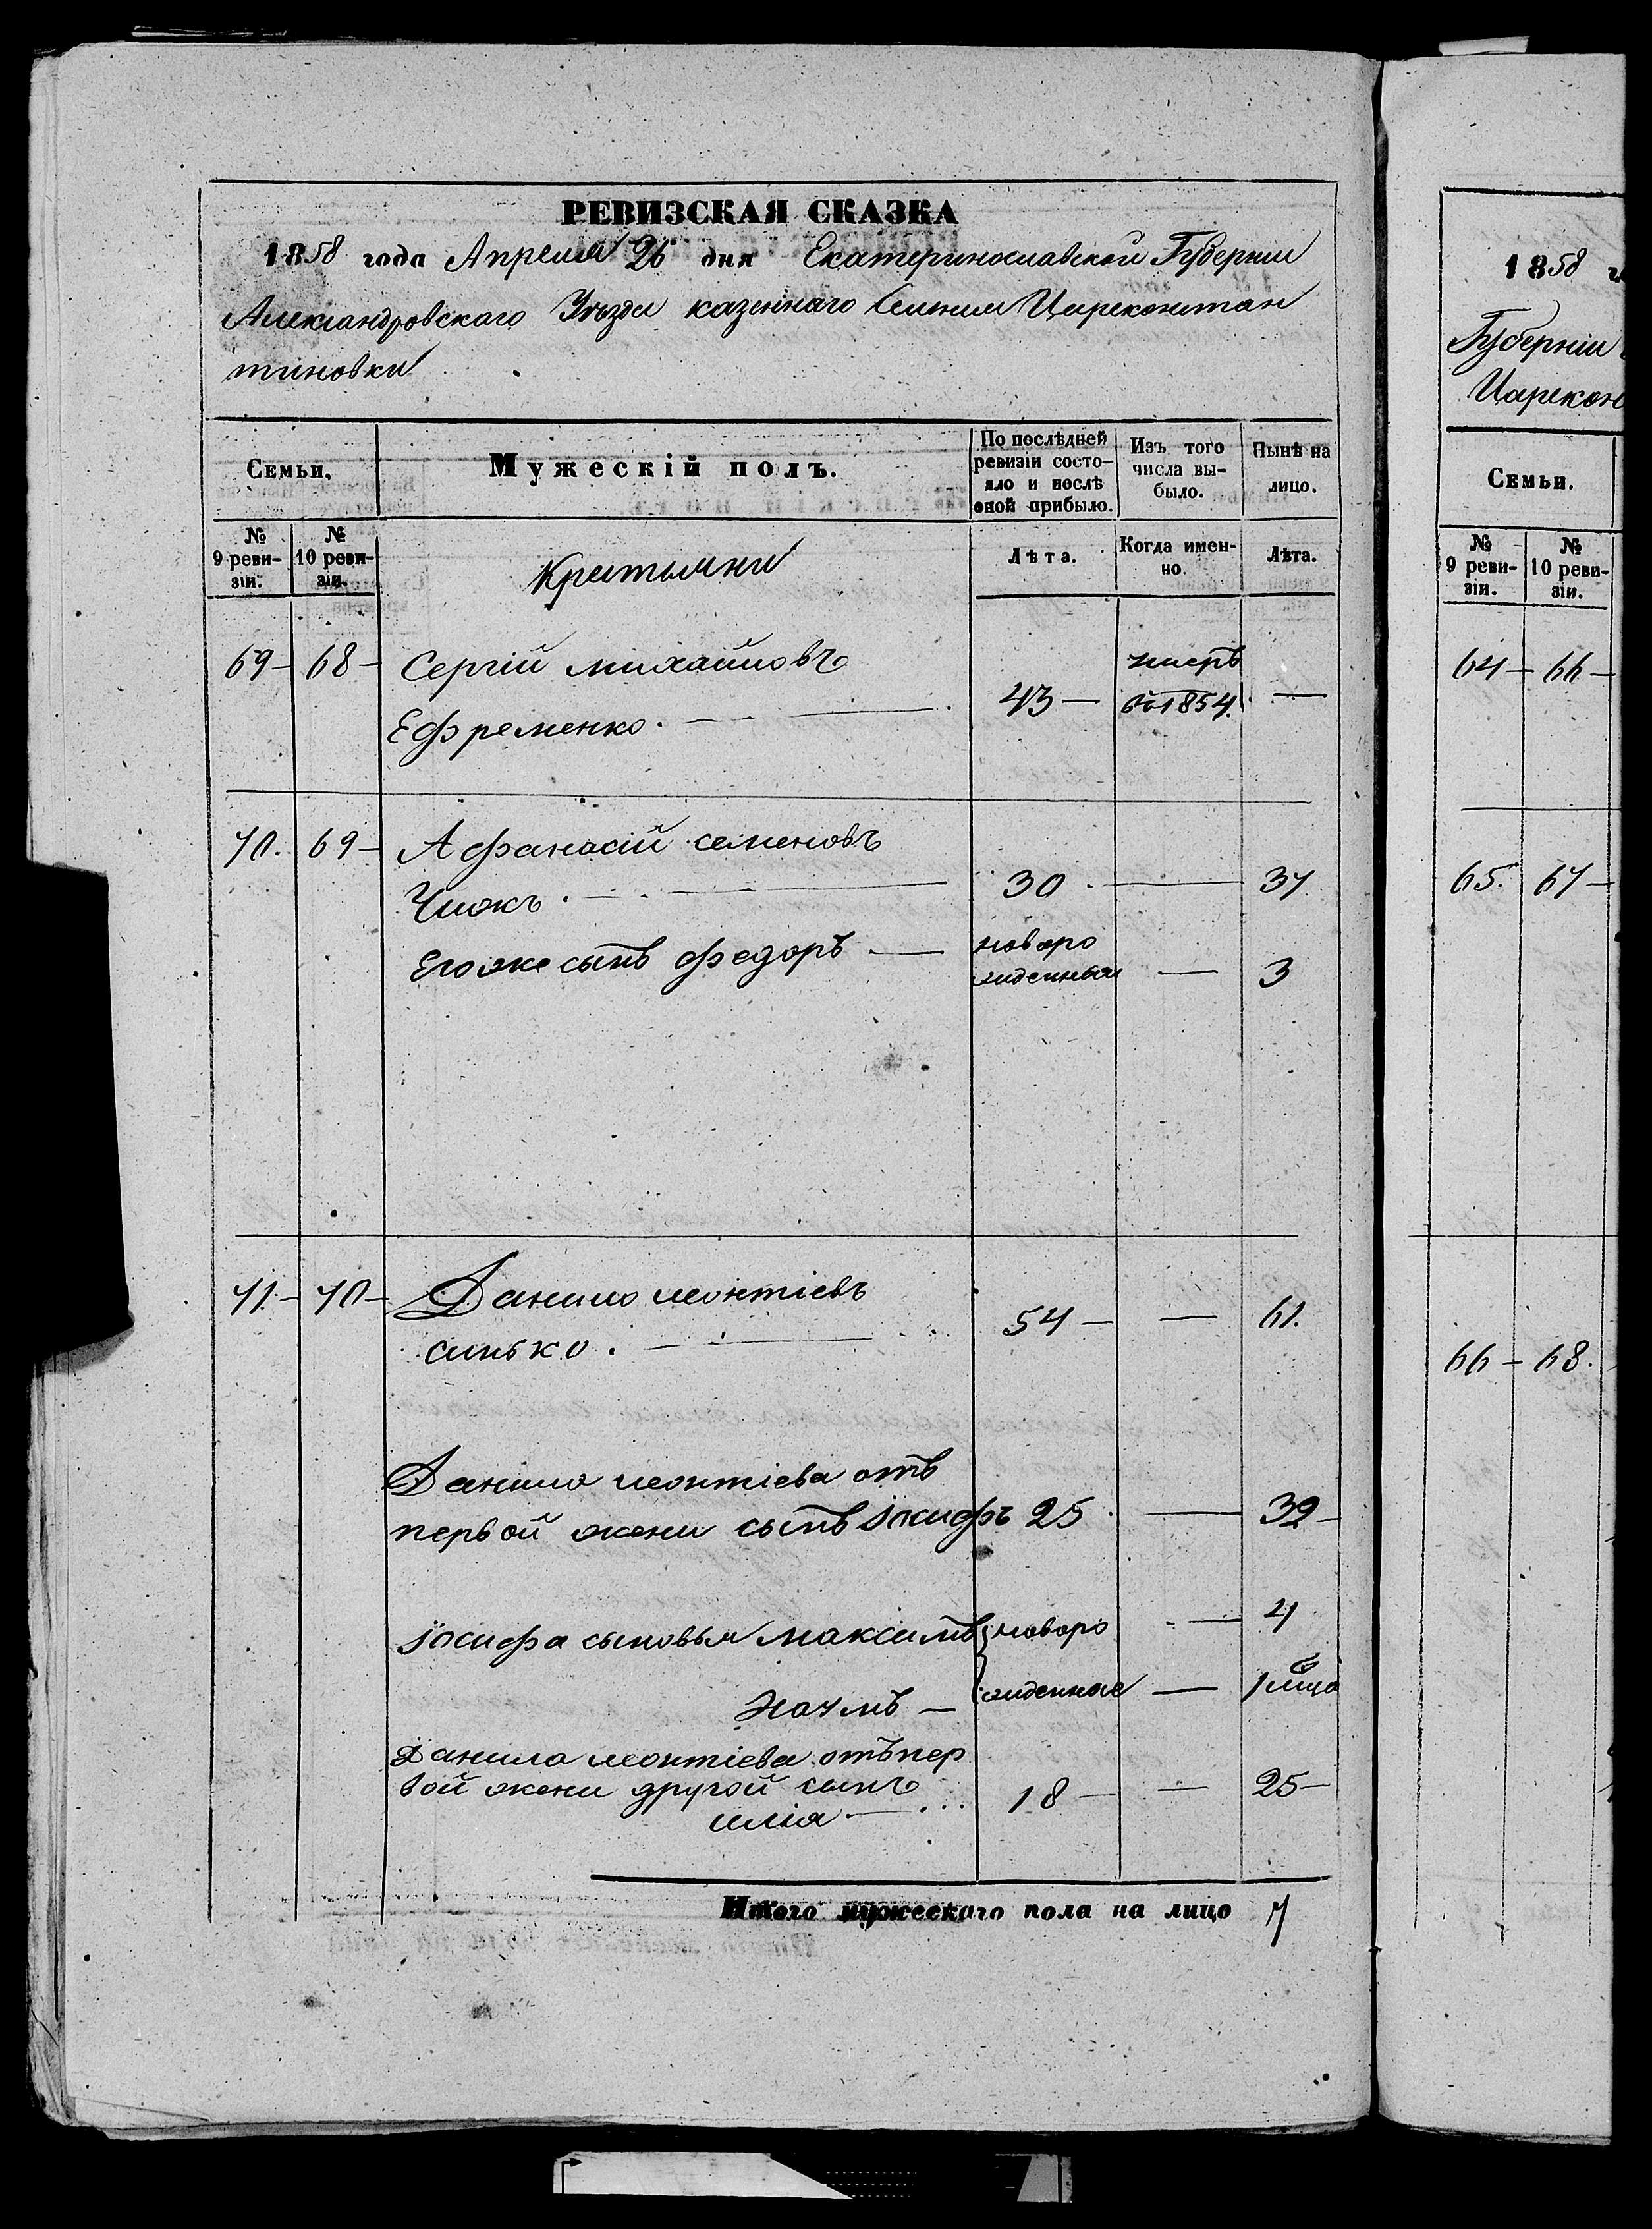 РЕВИЗСКАЯ СКАЗКА
1858 года Апреля 26 дня Екатеринославской Губернии
Александровского Уѣзда казеннаго Селения Цареконстан
тиновки
Семьи.
Мужескій полъ.
По послѣдней ревизіи состо-
яло и послѣ
оной прибыло.
Изъ того
числа вы-
было.
Нынѣ на
лицо.
№
9 реви-
зіи.
№
10 реви-
зіи.
Лѣта.
Когда имен-
но.
Лѣта.
69 - 68 - Сергій михайловъ
Ефременко. — 43 — въ 1854. —
70. 69 - Афанасій семеновъ
Чижъ. — 30. — 37
Его же сынъ федоръ — новоро
жденный — 3
71. - 70 - Данило леонтіевъ
синько. — 54 — — 61.
Данила леонтіева отъ
первой жени сынъ Іосифъ 25. — 32 -
Іосифа сыновья максимъ новоро — 4
жденные
Наумъ — — 1
Данила леонтіева отъ пер
вой жени другой сынъ
илія — 18 — — 25 —
Итого мужескаго пола на лицо 7
1858 г
Губерніи
Царекон
Семьи.
№
9 реви-
зіи.
№
10 реви-
зіи.
64 - 66 -
65. 67 -
66 - 68.